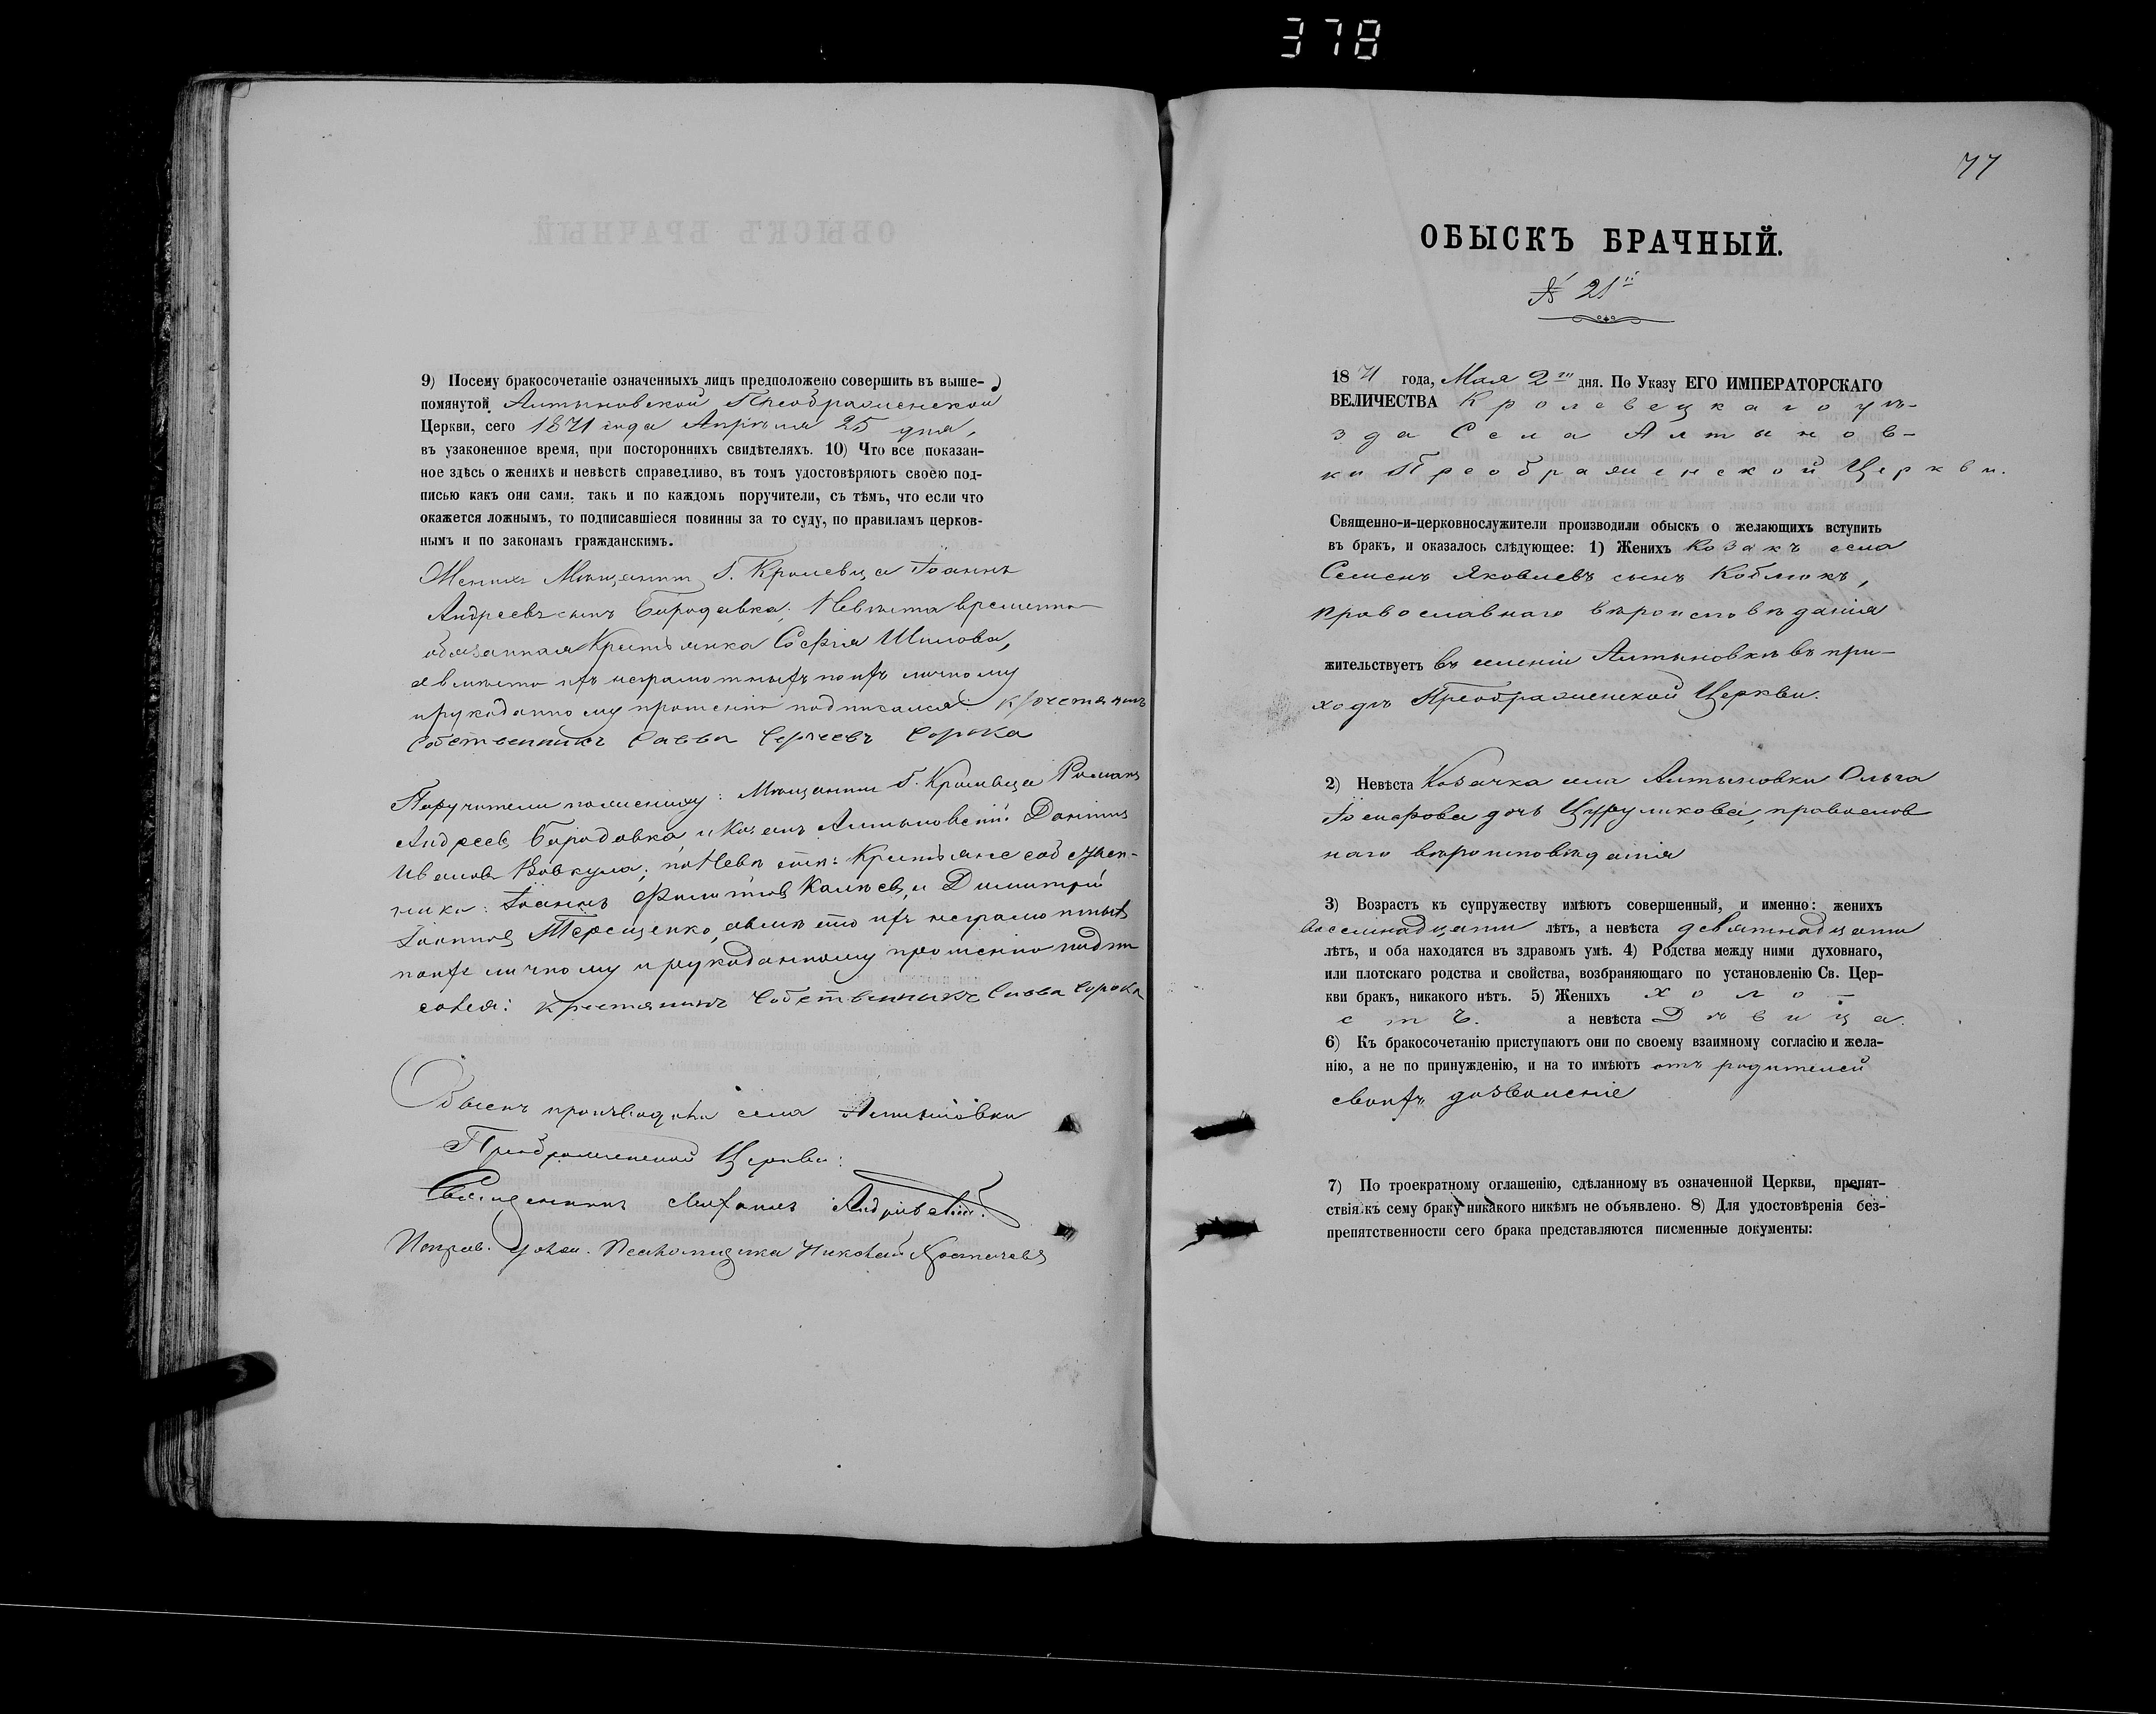 378
9) Посему бракосочетаніе означенныхъ лицъ предположено совершить въ выше-
помянутой Алтыновской Преображенской
Церкви, сего 1871 года Апрѣля 25 дня,
въ узаконенное время, при постороннихъ свидѣтеляхъ. 10) Что все показан-
ное здѣсь о женихѣ и невѣстѣ справедливо, въ томъ удостовѣряютъ своею под-
писью какъ они сами, такъ и по каждомъ поручители, съ тѣмъ, что если что
окажется ложнымъ, то подписавшіеся повинны за то суду, по правиламъ церков-
нымъ и по законамъ гражданскимъ.
Женихъ Мѣщанинъ Г. Кролевца Іоаннъ
Андреевъ сынъ Бородавка; Невѣста временно
обязанная Крестьянка Софія Шилова,
а вмѣсто ихъ неграмотныхъ по ихъ личному
и рукоданному прошенію подписался: крестянинъ
собственникъ Савва Сергеевъ Сорока
Поручители по жениху: Мѣщанинъ Г. Кролевца Романъ
Андреевъ Бородавка, и Козакъ Алтыновскій Даніилъ
Ивановъ Вовкула; по Невѣстѣ: Крестьяне собствен-
ники: Іоаннъ Филиповъ и Димитрій
Іоанновъ Терещенко, а вмѣсто ихъ неграмотныхъ
по ихъ личному и рукоданному прошенію подпи
сался: крестянинъ собственникъ Савва Сорока
Обыскъ производили села Алтыновки
Преображенской Церкви:
Священникъ Андріевскій.
Исправ. должн. Псаломщика Николай
77
ОБЫСКЪ БРАЧНЫЙ.
№ 21й
1871 года, Мая 2го дня. По Указу ЕГО ИМПЕРАТОРСКАГО
ВЕЛИЧЕСТВА Кролевецкаго уѣ-
зда Села Алтынов-
ки Преображенской Церкви.
Священно-и-церковнослужители производили обыскъ о желающихъ вступить
въ бракъ, и оказалось слѣдующее: 1) Женихъ Козакъ села
Семенъ Яковлевъ сынъ Коблюкъ,
православнаго вѣроисповѣданія
жительствуетъ въ селеніи Алтыновкѣ въ при-
ходѣ Преображенской Церкви.
2) Невѣста Козачка села Алтыновки Ольга
Іосифова дочь Цируликова, православ
наго вѣроисповѣданія
3) Возрастъ къ супружеству имѣютъ совершенный, и именно: женихъ
восемнадцати лѣтъ, а невѣста девятнадцати
лѣтъ, и оба находятся въ здравомъ умѣ. 4) Родства между ними духовнаго,
или плотскаго родства и свойства, возбраняющаго по установленію Св. Цер-
кви бракъ, никакого нѣтъ. 5) Женихъ холо-
стъ. а невѣста Дѣвица.
6) Къ бракосочетанію приступаютъ они по своему взаимному согласію и жела-
нію, а не по принужденію, и на то имѣютъ отъ родителей
своихъ дозволеніе
7) По троекратному оглашенію, сдѣланному въ означенной Церкви, препят-
ствія къ сему браку никакого никѣмъ не объявлено. 8) Для удостовѣренія без-
препятственности сего брака представляются писменные документы: